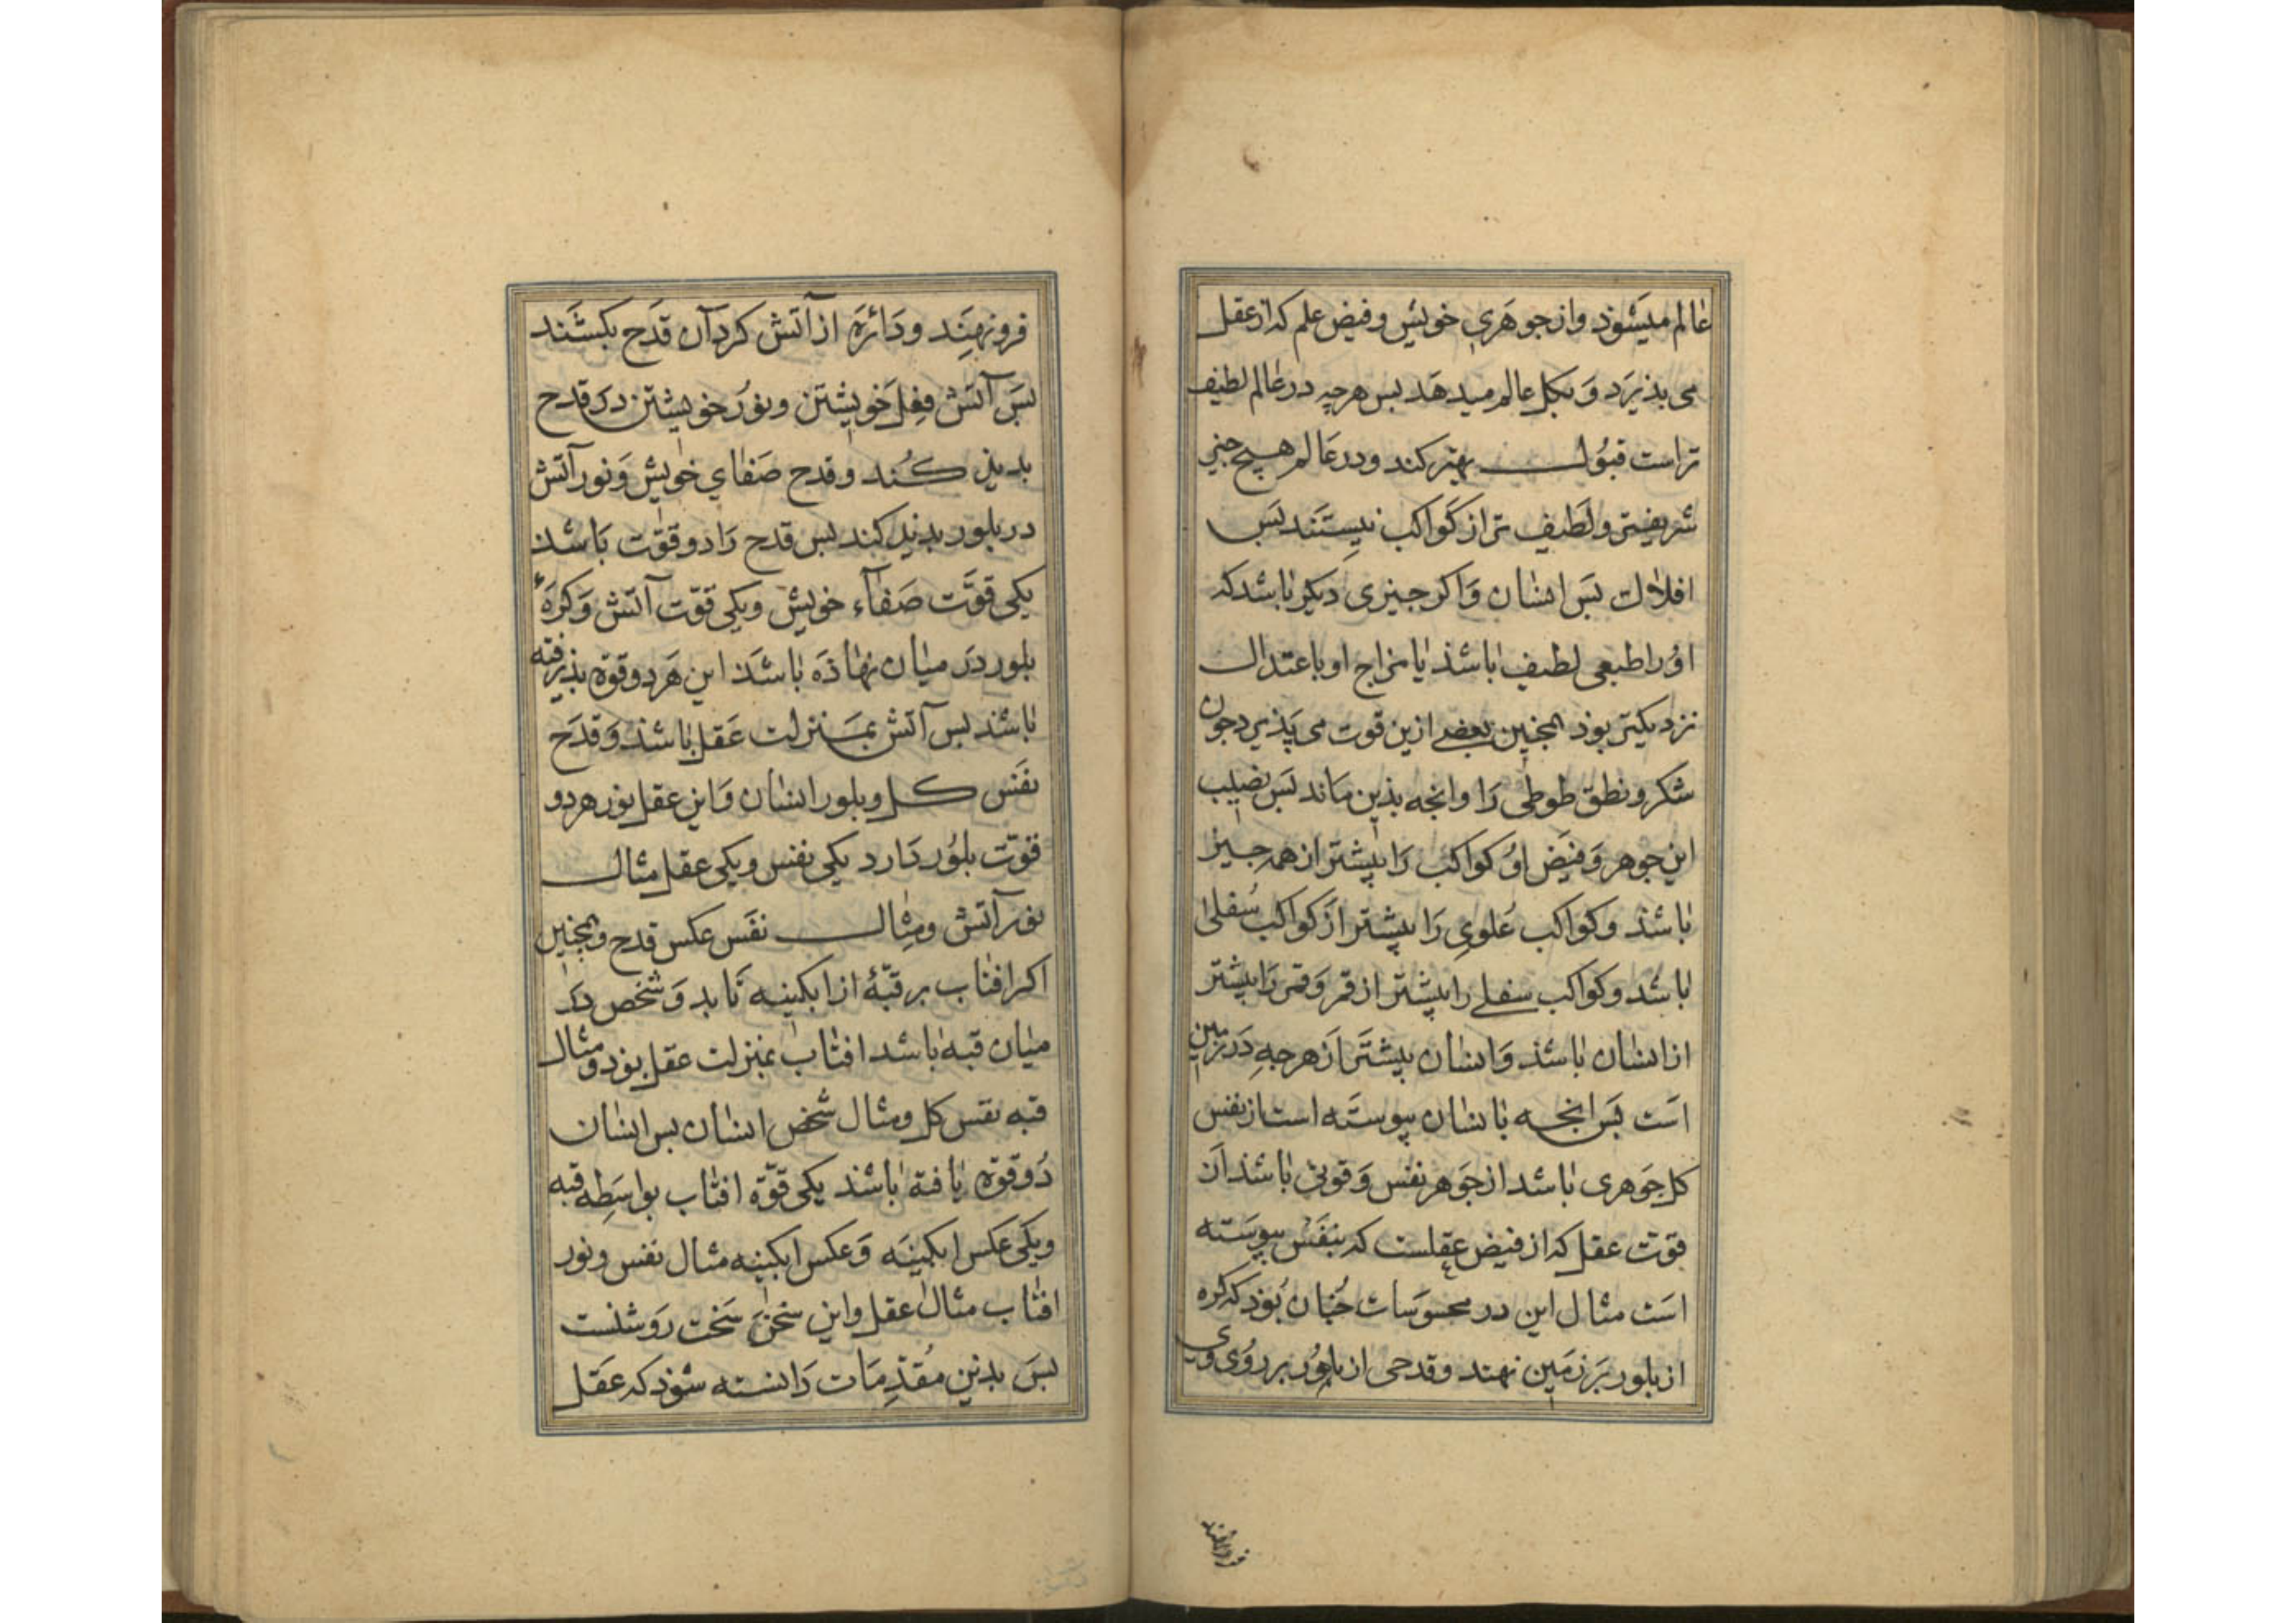 عالم میشوذ واز جوهری خویش وفیض علم که از عقل
می بذیرد و بکل عالم میدهد بس هرچه در عالم لطیف
تراست قبول بهتر کند ودر عالم هیچ جیزی
شریفتر ولطیف تر از کواکب نیستند بس
افلاک بس انسان واکر جیزی دیکر باشد که
اورا طبعی لطیف باشذ یا مزاج او باعتدال
نزدیکتر بوذ همجنین بعضی ازین قوت می پذیرد جون
شکر ونطق طوطی را وانجه بذین ماند بس نصیب
این جوهر وفیض او کواکب را بیشتر از همه جیز
باشذ وکواکب علوی را بیشتر از کواکب سفلی
باشد وکواکب سفلی را بیشتر از قمر وقمر را بیشتر
از انسان باشذ وانسان بیشتر از هرجه در زمین
است بس انجه بانسان پیوسته است از نفس
کل جوهری باشد از جوهر نفس وقوتی باشذ از
قوت عقل که از فیض عقلست که بنفس پیوسته
است مثال این در محسوسات جنان بوذ که کره
از بلور بر زمین نهند وقدحی از بلور بر روی وی
فرو نهند ودائره از آتش کرد آن قدح بکشند
بس آتش فعل خویشتن ونور خویشتن در قدح
بدیذ کند وقدح صفای خویش ونور آتش
در بلور بدیذ کند بس قدح را دو قوت باشذ
یکی قوت صفاء خویش ویکی قوت آتش وکرهٔ
بلور در میان نهاذه باشذ این هر دو قوة بذیرفته
باشذ بس آتش بمنزلت عقل باشذ وقدح
نفس کل وبلور انسان واین عقل نور هر دو
قوت بلور دارد یکی نفس ویکی عقل مثال
نور آتش ومثال نفس عکس قدح وهمجنین
اکر افتاب بر قبهٔ از ابکینه تابد وشخص در
میان قبه باشد افتاب بمنزلت عقل بوذ ومثال
قبه نفس کل ومثال شخص انسان بس انسان
دو قوة یافته باشذ یکی قوة افتاب بواسطه قبه
ویکی عکس ابکینه وعکس ابکینه مثال نفس ونور
افتاب مثال عقل واین سخن سخت روشنست
بس بذین مقدمات دانسته شوذ که عقل